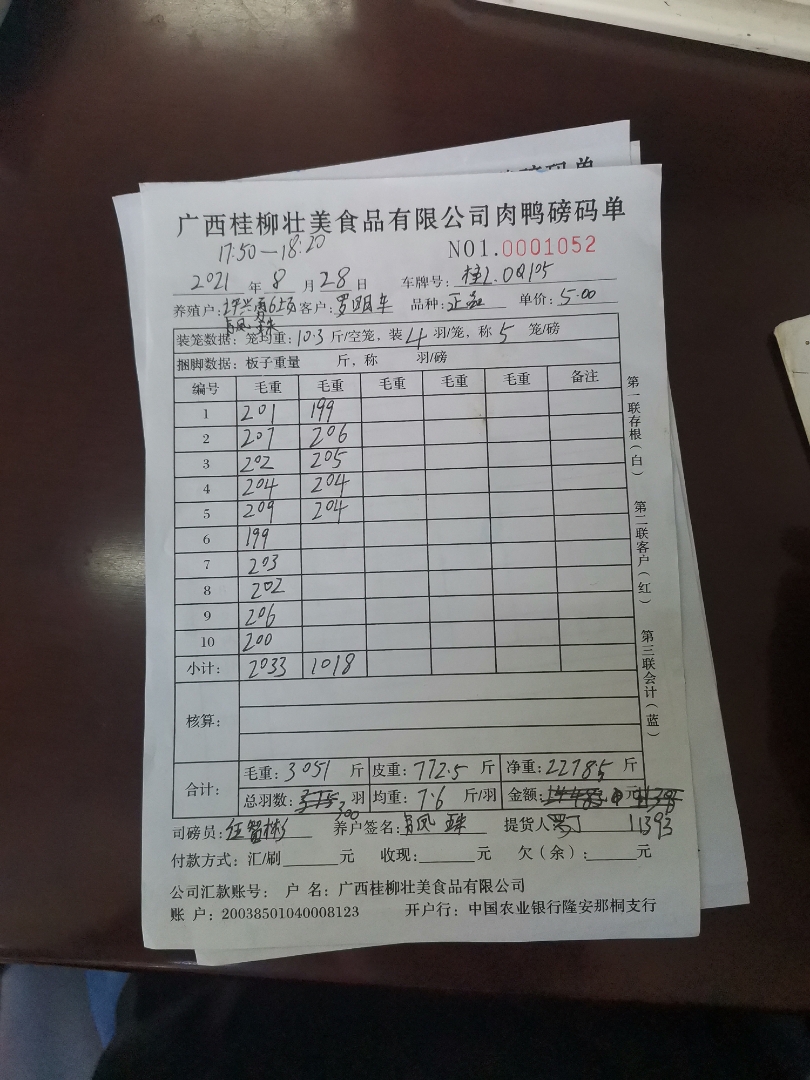 广西桂柳壮美食品有限公司肉鸭磅码单
17:50—18:20
NO1.0001052
2021 年 8 月 28 日 车牌号: 桂L.0Q105
养殖户: 客户: 罗 车 品种: 正 单价: 5.00
凤
装笼数据: 笼均重: 10.3 斤/空笼, 装 4 羽/笼, 称 5 笼/磅
捆脚数据: 板子重量 斤, 称 羽/磅
编号 毛重 毛重 毛重 毛重 毛重 备注
1 201 199
2 207 206
3 202 205
4 204 204
5 209 204
6 199
7 203
8 202
9 206
10 200
小计: 2033 1018
核算:
合计: 毛重: 3051 斤 皮重: 772.5 斤 净重: 2278.5 斤
总羽数: 300 羽 均重: 7.6 斤/羽 金额: 元
司磅员: 养户签名: 凤 提货人 11393
付款方式: 汇/刷 元 收现: 元 欠(余): 元
公司汇款账号: 户 名: 广西桂柳壮美食品有限公司
账 户: 20038501040008123 开户行: 中国农业银行隆安那桐支行
第一联存根(白)
第二联客户(红)
第三联会计(蓝)